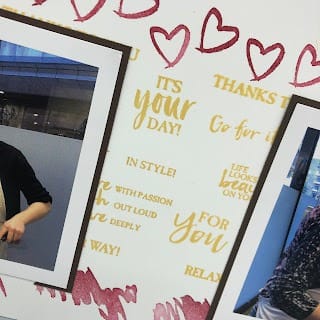 U
IT'S
your
DAY!
THANKS T
Go for it
IN STYLE!
LIFE
LOOKS
beau
ON YOU
e WITH PASSION
h OUT LOUD
ve DEEPLY
FOR
you
WAY!
RELAX